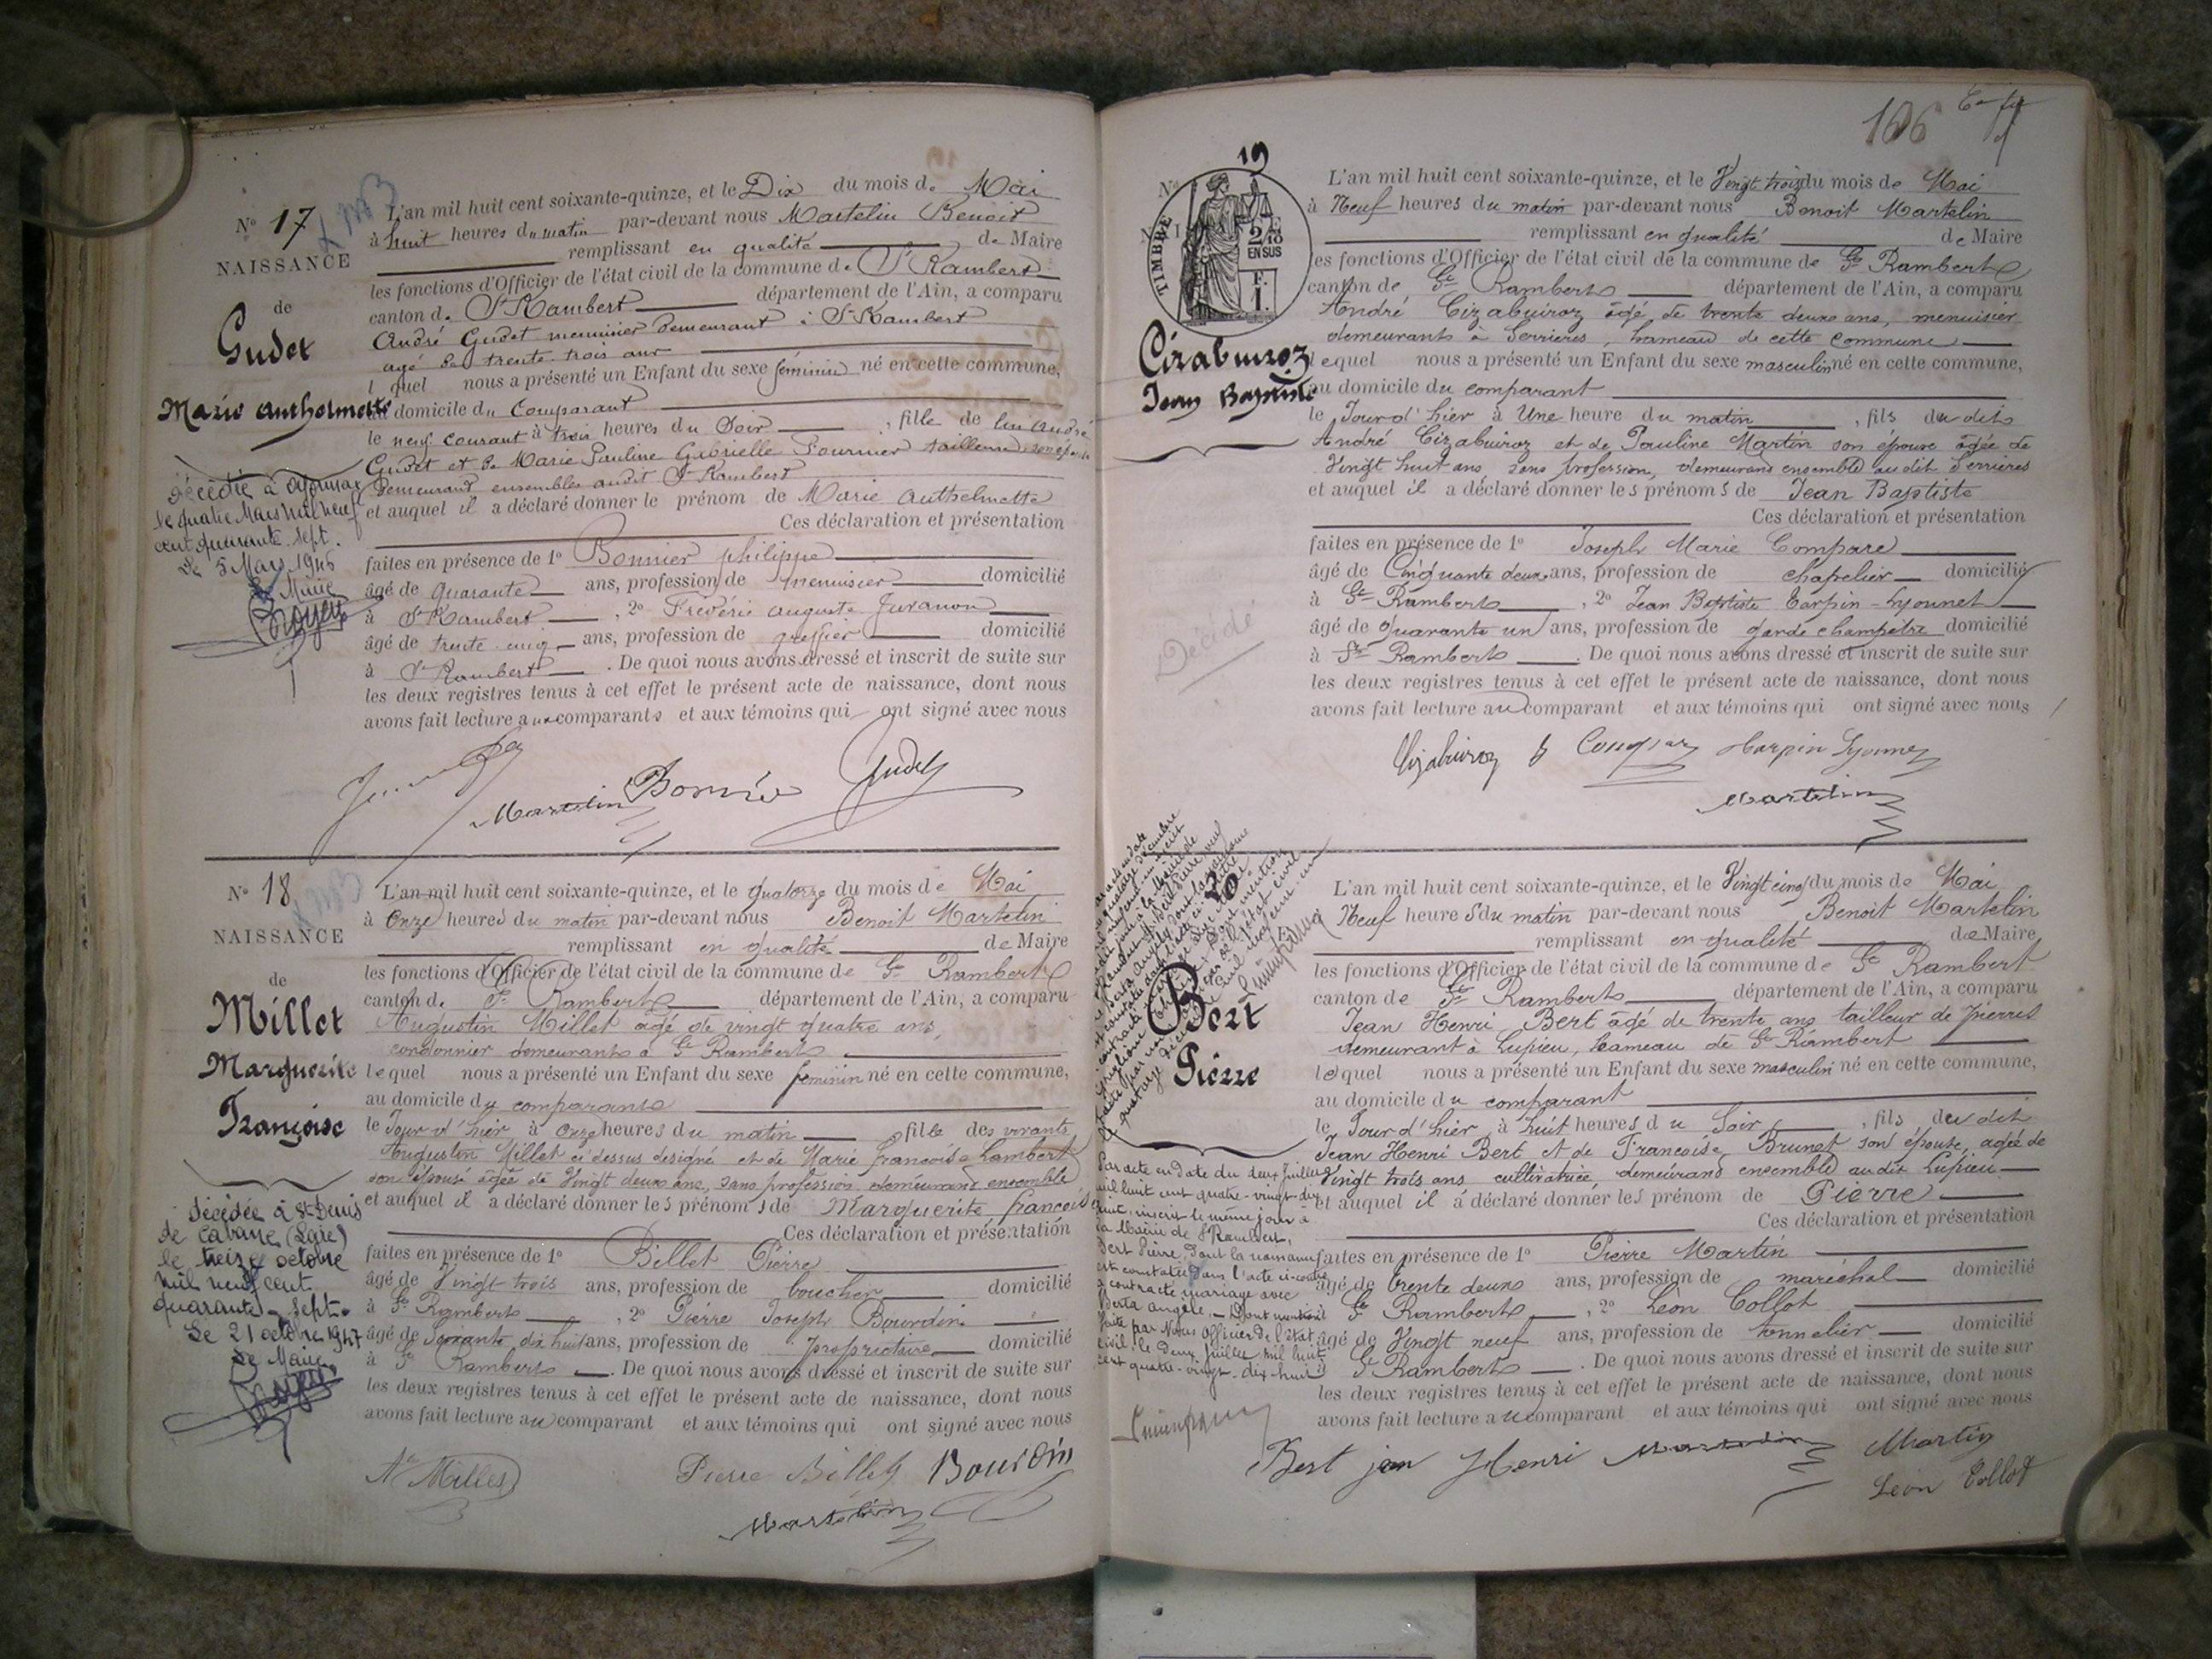 N° 17
NAISSANCE
de
Gudet
Marie Anthelmette
L'an mil huit cent soixante-quinze, et le Dix du mois de Mai
à huit heures du matin par-devant nous Martelin Benoit
remplissant en qualité de Maire
les fonctions d'Officier de l'état civil de la commune de St Rambert
canton de St Rambert département de l'Ain, a comparu
André Gudet menuisier demeurant à St Rambert
agé de trente trois ans
lequel nous a présenté un Enfant du sexe féminin né en cette commune,
au domicile du Comparant
le neuf courant à trois heures du Soir, fille de lui André
Gudet et de Marie Pauline Gabrielle Fournier tailleuse son épouse
demeurant ensembles audit St Rambert
et auquel il a déclaré donner le prénom de Marie Anthelmette
Ces déclaration et présentation
faites en présence de 1° Bonnier philippe
âgé de quarante ans, profession de menuisier domicilié
à St Rambert, 2° Frédéric auguste Juvanon
âgé de trente cinq ans, profession de greffier domicilié
à St Rambert. De quoi nous avons dressé et inscrit de suite sur
les deux registres tenus à cet effet le présent acte de naissance, dont nous
avons fait lecture aux comparants et aux témoins qui ont signé avec nous
Martelin Bonnier Gudet
Décédée à Oyonnax
le quatre Mars mil neuf
cent quarante sept.
Le 5 Mars 1946
Le Maire
N° 18
NAISSANCE
de
Millet
Marguerite
Françoise
L'an mil huit cent soixante-quinze, et le quatorze du mois de Mai
à Onze heures du matin par-devant nous Benoit Martelin
remplissant en qualité de Maire
les fonctions d'Officier de l'état civil de la commune de St Rambert
canton de St Rambert département de l'Ain, a comparu
Augustin Millet âgé de vingt quatre ans,
cordonnier demeurant à St Rambert
lequel nous a présenté un Enfant du sexe féminin né en cette commune,
au domicile du comparant
le Jour d'hier à onze heures du matin fille des vivants
Augustin Millet ci dessus désigné et de Marie françoise Lambert
son épouse âgée de Vingt deux ans, sans profession demeurant ensemble
et auquel il a déclaré donner les prénoms de Marguerite françoise
Ces déclaration et présentation
faites en présence de 1° Billet Pierre
âgé de Vingt trois ans, profession de boucher domicilié
à St Rambert, 2° Pierre Joseph Bourdin
âgé de Soixante dix huit ans, profession de propriétaire domicilié
à St Rambert. De quoi nous avons dressé et inscrit de suite sur
les deux registres tenus à cet effet le présent acte de naissance, dont nous
avons fait lecture au comparant et aux témoins qui ont signé avec nous
Millet Pierre Billet Bourdin
Martelin
Décédée à St Denis
de Cabane (Loire)
le treize octobre
mil neuf cent
quarante-sept.
Le 21 octobre 1947
Le Maire
106
N° 19
TIMBRE
2/10
EN SUS
F.
1.
Cizabuiroz
Jean Baptiste
L'an mil huit cent soixante-quinze, et le Vingt trois du mois de Mai
à Neuf heures du matin par-devant nous Benoit Martelin
remplissant en qualité de Maire
les fonctions d'Officier de l'état civil de la commune de St Rambert
canton de St Rambert département de l'Ain, a comparu
André Cizabuiroz âgé de trente deux ans, menuisier
demeurant à Serrières, hameau de cette commune
lequel nous a présenté un Enfant du sexe masculin né en cette commune,
au domicile du comparant
le Jour d'hier à Une heure du matin, fils du dit
André Cizabuiroz et de Pauline Martin son épouse âgée de
Vingt huit ans, sans profession, demeurant ensemble au dit Serrières
et auquel il a déclaré donner les prénoms de Jean Baptiste
Ces déclaration et présentation
faites en présence de 1° Joseph Marie Compare
âgé de Cinquante deux ans, profession de chapelier domicilié
à St Rambert, 2° Jean Baptiste Carpin-Lyonnet
âgé de quarante un ans, profession de garde champêtre domicilié
à St Rambert. De quoi nous avons dressé et inscrit de suite sur
les deux registres tenus à cet effet le présent acte de naissance, dont nous
avons fait lecture au comparant et aux témoins qui ont signé avec nous
Cizabuiroz
Martelin
Décédé
20
Bert
Pierre
L'an mil huit cent soixante-quinze, et le Vingt cinq du mois de Mai
Neuf heures du matin par-devant nous Benoit Martelin
remplissant en qualité de Maire
les fonctions d'Officier de l'état civil de la commune de St Rambert
canton de St Rambert département de l'Ain, a comparu
Jean Henri Bert âgé de trente ans tailleur de pierres
demeurant à Lupieu, hameau de St Rambert
lequel nous a présenté un Enfant du sexe masculin né en cette commune,
au domicile du comparant
le Jour d'hier à huit heures du Soir, fils du dit
Jean Henri Bert et de Françoise Brunet son épouse, agée de
Vingt trois ans cultivatrice demeurant ensemble au dit Lupieu
et auquel il a déclaré donner les prénom de Pierre
Ces déclaration et présentation
faites en présence de 1° Pierre Martin
âgé de trente deux ans, profession de maréchal domicilié
à St Rambert, 2° Léon Collot
âgé de Vingt neuf ans, profession de tonnelier domicilié
à St Rambert. De quoi nous avons dressé et inscrit de suite sur
les deux registres tenus à cet effet le présent acte de naissance, dont nous
avons fait lecture au comparant et aux témoins qui ont signé avec nous
Bert jean Henri Martelin Martin
Léon Collot
Par acte en date du deux Juillet
mil huit cent quatre-vingt-dix
huit, inscrit le même jour à
la Mairie de St Rambert,
Bert Pierre, dont la naissance
est constatée dans l'acte ci-contre
a contracté mariage avec
Berta Angèle. Dont mention
faite par Nous Officier de l'état
civil le deux Juillet mil huit
cent quatre-vingt-dix-huit